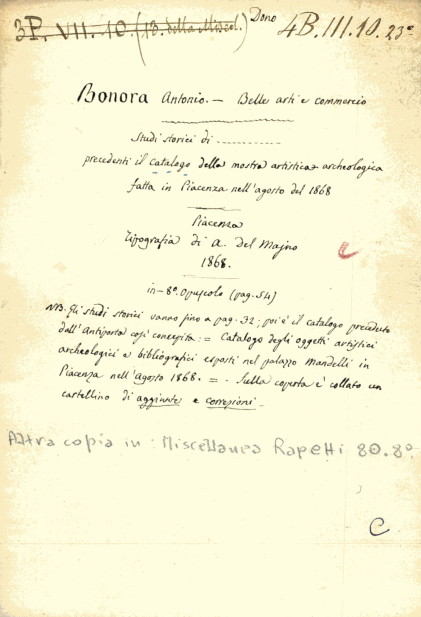 3P. VII. 10. (13. della Miscel.) Dono 4B.III.10.23º
Bonora Antonio. — Belle arti e commercio
Studi storici di ..............
precedenti il catalogo della mostra artistica archeologica
fatta in Piacenza nell'agosto del 1868
Piacenza
Tipografia di A. del Majno
1868.
in-8º. Opuscolo (pag. 54)
NB. Gli studi storici vanno fino a pag. 32; poi è il catalogo preceduto
dall'Antiporta così concepita: = Catalogo degli oggetti artistici
archeologici e bibliografici esposti nel palazzo Mandelli in
Piacenza nell'agosto 1868. = . Sulla coperta è collato un
cartellino di aggiunte e correzioni.
Altra copia in: Miscellanea Rapetti 80.8º.
C